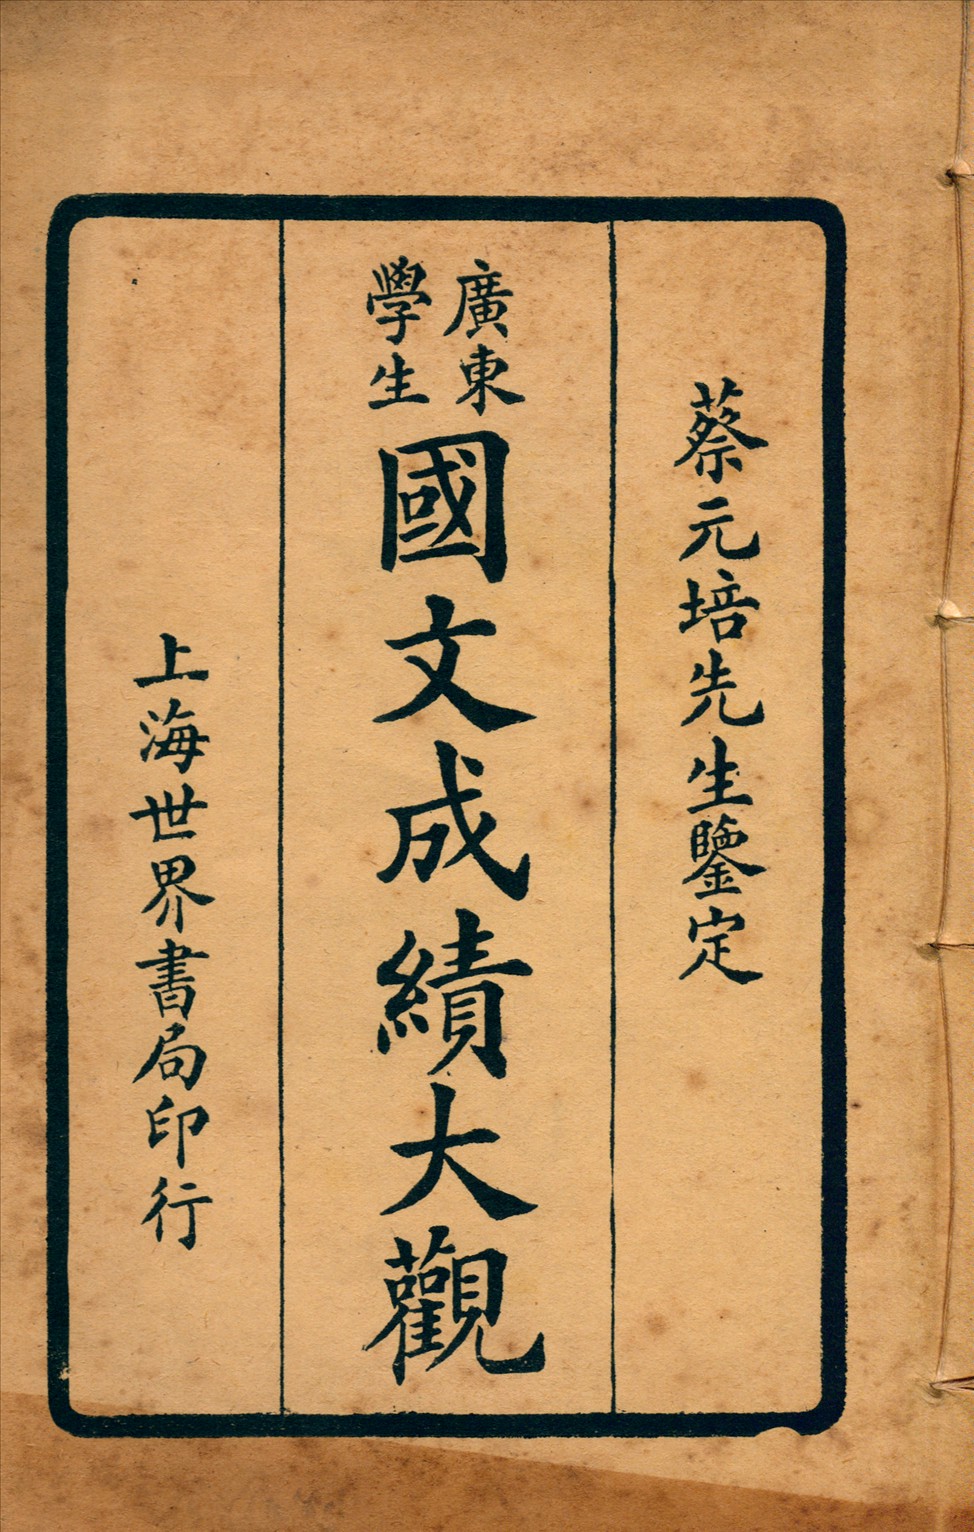 蔡元培先生鑒定
廣東
學生
國文成績大觀
上海世界書局印行